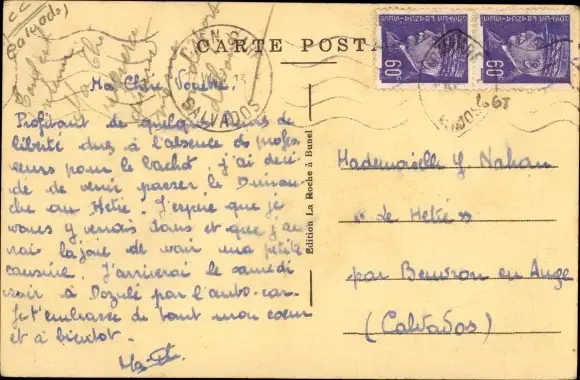 CARTE POSTA
Calvados)
CAEN GARE
13
CALVADOS
60
60
Ma Chère Poucette.
Profitant de quelques heures de
liberté dues à l'absence de profes
seurs pour le bachot, j'ai déci
dé de venir passer le Diman-
che au Hetre. J'espère que je
vous y verrais dans et que j'au
rai la joie de voir ma petite
cousine. J'arriverai le samedi
soir à Dozulé par l'auto-car.
Je t'embrasse de tout mon coeur
et à bientot.
Edition La Roche à Bunel
Mademoiselle Y Nahan
"Le Hetre"
par Beuvron en Auge
(Calvados)